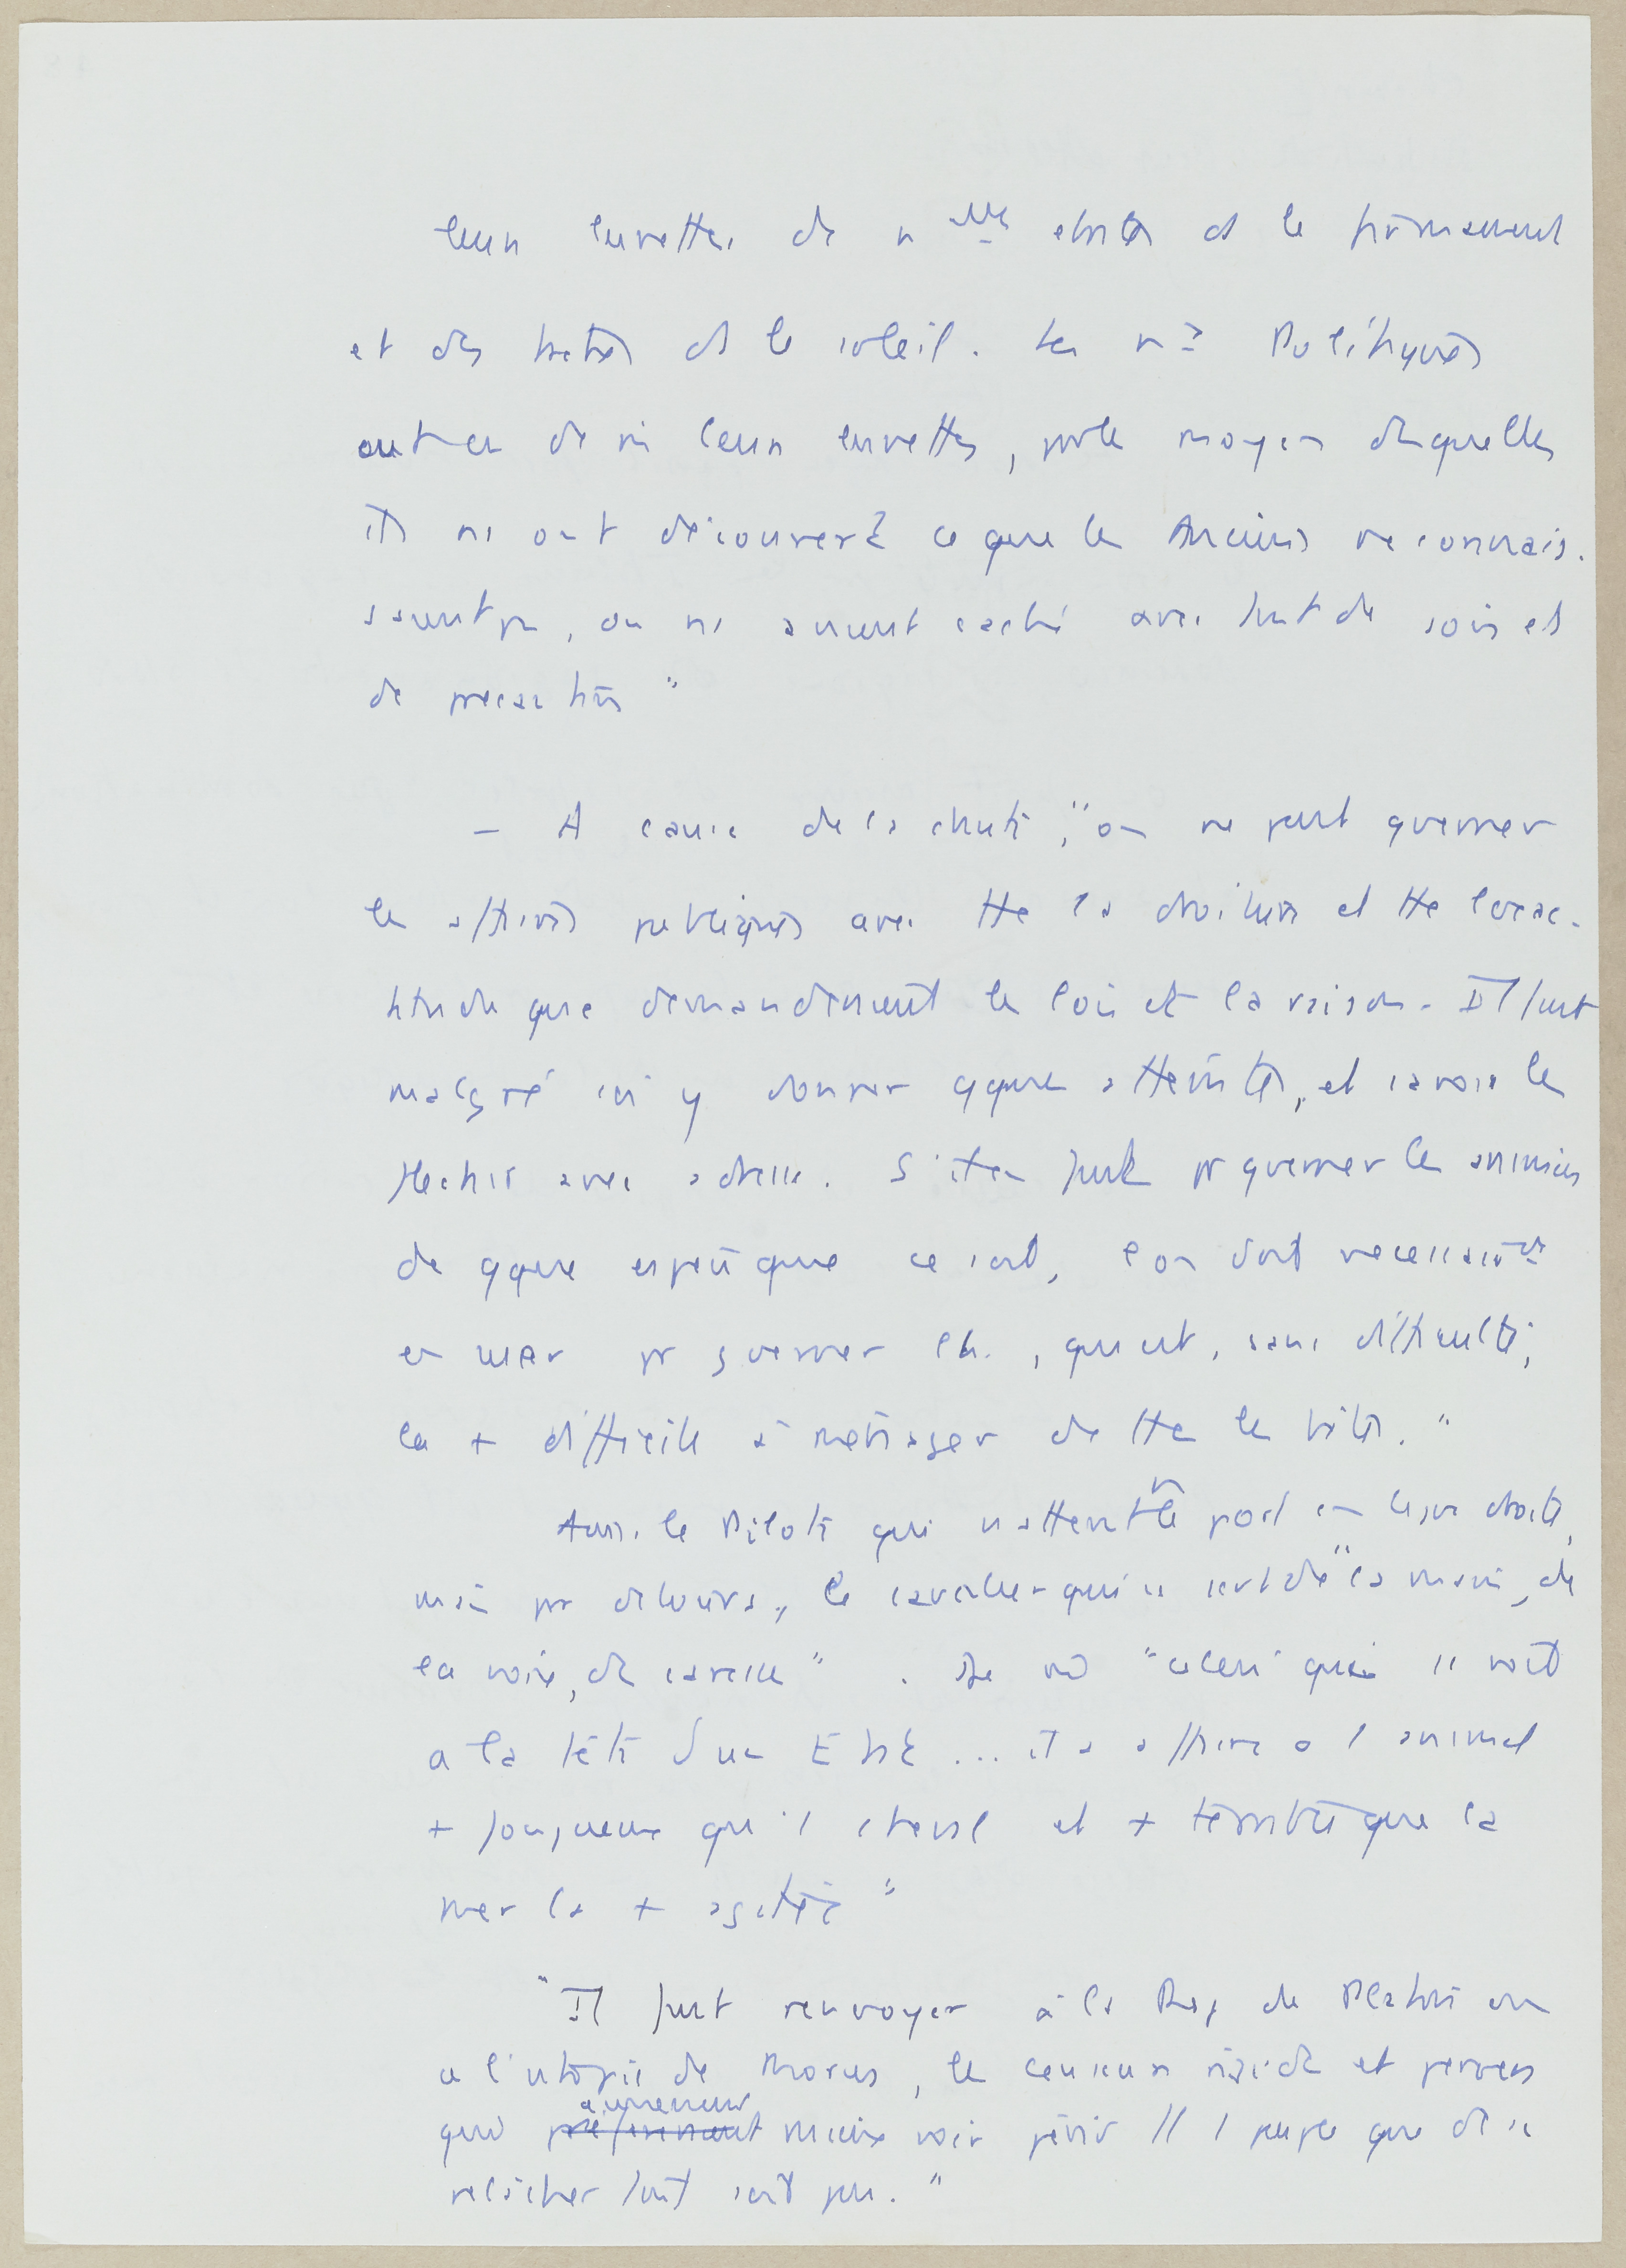 leurs lunettes de n^lles etoiles ds le firmament
et des taches ds le soleil. Les n^x Politiques
ont eu de m leurs lunettes, par le moyen desquelles
ils ns ont découvert ce que les Anciens ne connais.
saient pas, ou ns avaient caché avec tant de soin et
de precaution"
— A cause de la chute, "on ne peut gverner
les affaires publiques avec tte la droiture et tte l'exac-
titude que demanderaient les lois et la raison. Il faut
malgré soi y donner qque atteinte, et savoir les
flechir avec adresse. S'il en faut pr gverner les animaux
de qque espèce que ce soit, l'on doit necessair^t
en user pr gverner l'h., qui est, sans difficulté,
la + difficile à ménager de ttes les bêtes."
Ainsi le Pilote qui n'attent le port en ligne droite,
mais par detours, le cavalier qui se sert de "la main, de
la voix, de caresse". De m "celui qui se voit
a la tête d'un Etat ... il a affaire a 1 animal
+ fougueux qu'1 cheval et + terrible que la
mer la + agitée"
"Il faut renvoyer à la Rep de Platon ou
a l'utopie de Morus, les censeurs rigides et
qui aimeraient mieux voir périr tt 1 peuple que de se
relâcher tant soit peu."